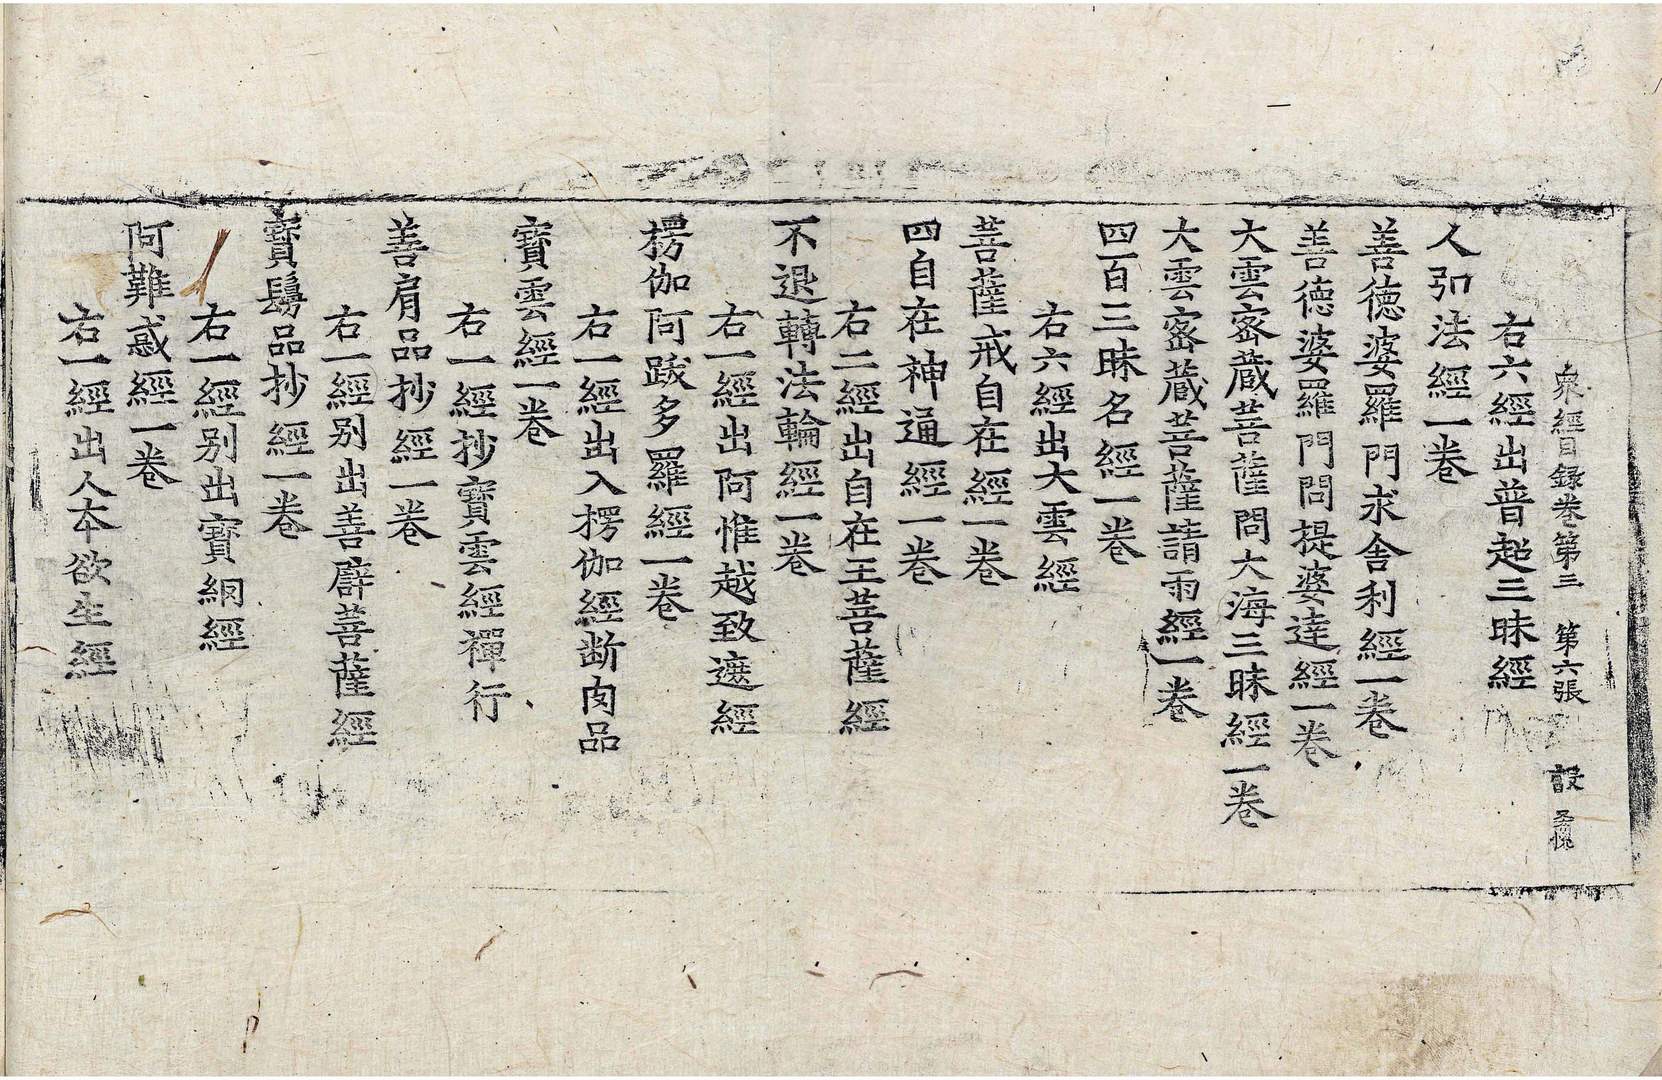 衆經目録卷第三 第六張 設
右六經出普超三昧經
人弘法經一卷
善德婆羅門求舍利經一卷
善德婆羅門問提婆達經一卷
大雲宻蔵菩薩問大海三昧經一卷
大雲宻蔵菩薩請雨經一卷
四百三昧名經一卷
右六經出大雲經
菩薩戒自在經一卷
四自在神通經一卷
右二經出自在王菩薩經
不退轉法輪經一卷
右一經出阿惟越致遮經
楞伽阿跋多羅經一卷
右一經出入楞伽經断肉品
寳雲經一卷
右一經抄寳雲經禪行
善肩品抄經一卷
右一經别出善臂菩薩經
寳鬘品抄經一卷
右一經别出寳網經
阿難惑經一卷
右一經出人本欲生經